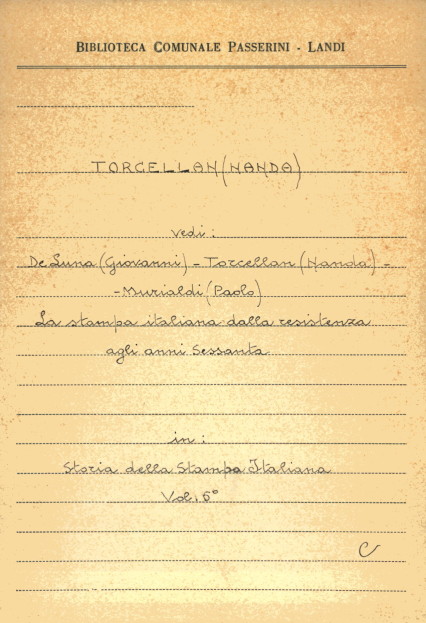 BIBLIOTECA COMUNALE PASSERINI - LANDI
TORCELLAN (NANDA)
vedi:
De Luna (Giovanni) - Torcellan (Nanda) -
- Murialdi (Paolo)
La stampa italiana dalla resistenza
agli anni Sessanta
in:
Storia della Stampa Italiana
Vol. 6°
C